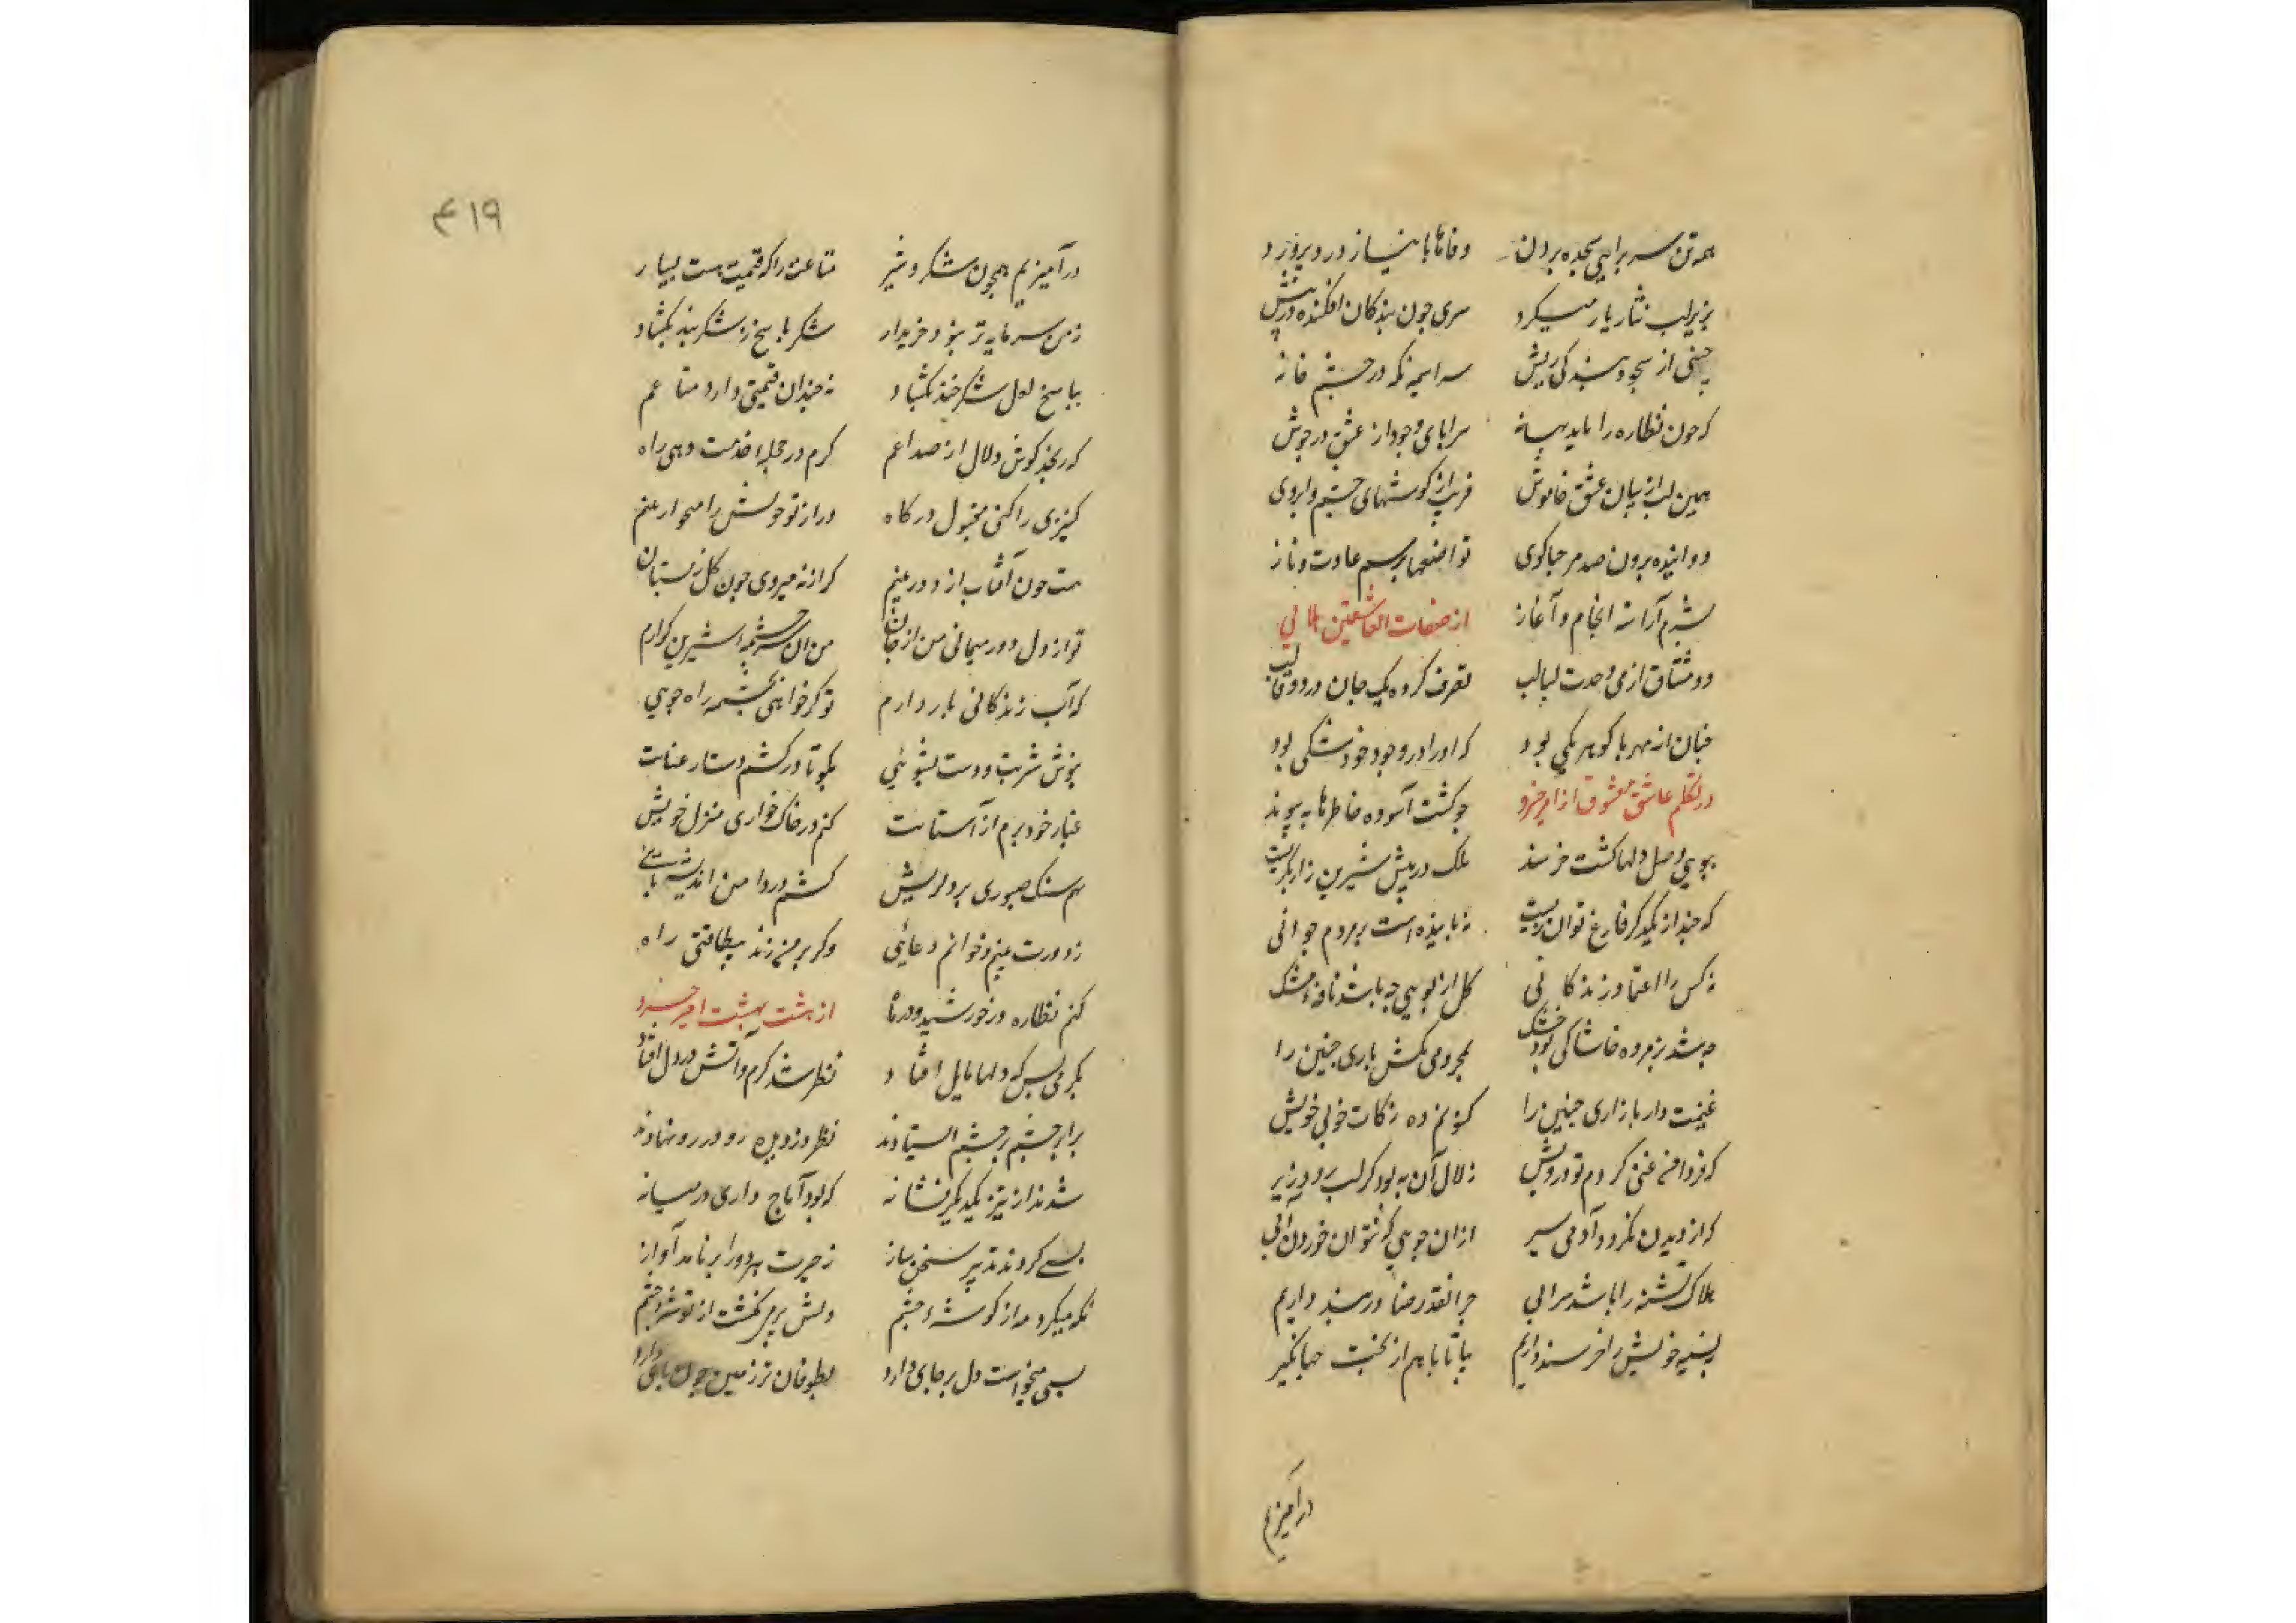 همه تن سر برای سجده بردن وفاها با نیاز
بزیر لب نثار یار میکرد سری چون بندکان افکنده در پیش
سراسیمه نکه در چشم خانه
که چون نظاره را یابد بهانه سراپای وجود از عشق در جوش
همین لب از بیان عشق خاموش فریب از کوشهای چشم و ابروی
دوانیده برون صد مرحبا کوی تواضعها برسم عادت و ناز
بشرم آراسته انجام و آغاز از صفات العاشقین هلالی
دو مشتاق از می وحدت لبالب تصرف کرده یک جان در دو قالب
چنان از مهر با کوهر یکی بود که او را در وجود خود شکی بود
در تکلم عاشق و معشوق از امیر خسرو چو کشت آسوده خاطرها به پیوند
ببوی وصل دلها کشت خرسند ملک در پیش شیرین زار بکریست
که چند از یکدکر فارغ توان زیست نه پاینده است بر مردم جوانی
نه کس را اعتماد زندکانی کل از بویی چه باشد نافهٔ مشک
چه شد پژمرده خاشاکی بود خشک بمحرومی مکش یاری چنین را
غنیمت دار بازاری چنین را کنونم ده زکات خوبی خویش
که فردا من غنی کردم تو درویش زلال آن به بود کز لب رود زیر
که از دیدن نکردد آدمی سیر ازان جویی که نتوان خوردن آبی
هلاک تشنه را باشد سرابی چرا نقد رضا در بند داریم
به نسیه خویش را خرسند داریم بیا تا با هم از بخت جهانکیر
درآمیزیم
۴۱۹
درآمیزیم همچون شکر و شیر متاعت را که قیمت هست بسیار
ز من سرمایه تر نبود خریدار شکر پاسخ ز شکر بند بکشاد
بپاسخ لعل شکرخند بکشاد نه چندان قیمتی دارد متاعم
که رنجد کوش دلال از صداعم کرم در جمله خدمت دهی راه
کنیزی را کنی مقبول درکاه ور از تو خویش را مهجور بینم
هست چون آفتاب از دور بینم کرانه میروی چون کل ز بستان
تو از دل دور میمانی من از جان من آن سرچشمه شیرین کوارم
که آب زندکانی بار دارم تو کر خواهی بچشمه راه جویی
بنوش شربت و دست بشویی بکو تا درکشم دستار عنایت
غبار خود برم از آستانت کنم در خاک خواری منزل خویش
نهم سنک صبوری بر دل ریش کشم در دامن اندیشه پایی
ز دورت بینم و خوانم دعایی وکر بر من زند بیطاقتی راه
کنم نظاره در خورشید و در ماه از هشت بهشت امیر خسرو
بکرمی بس که دلها مایل افتاد نظر شد کرم و آتش در دل افتاد
برابر چشم بر چشم ایستادند نظر دزدیده رو در رو نهادند
شدند از تیر یکدیکر نشانه که بود آماج داری در میانه
بسی کردند تدبیر سخن ساز ز حیرت هر دو را برنامد آواز
نکه میکرد مه از کوشهٔ چشم
بسی میخواست دل بر جای دارد بطوفان در زمین چون پای دارد